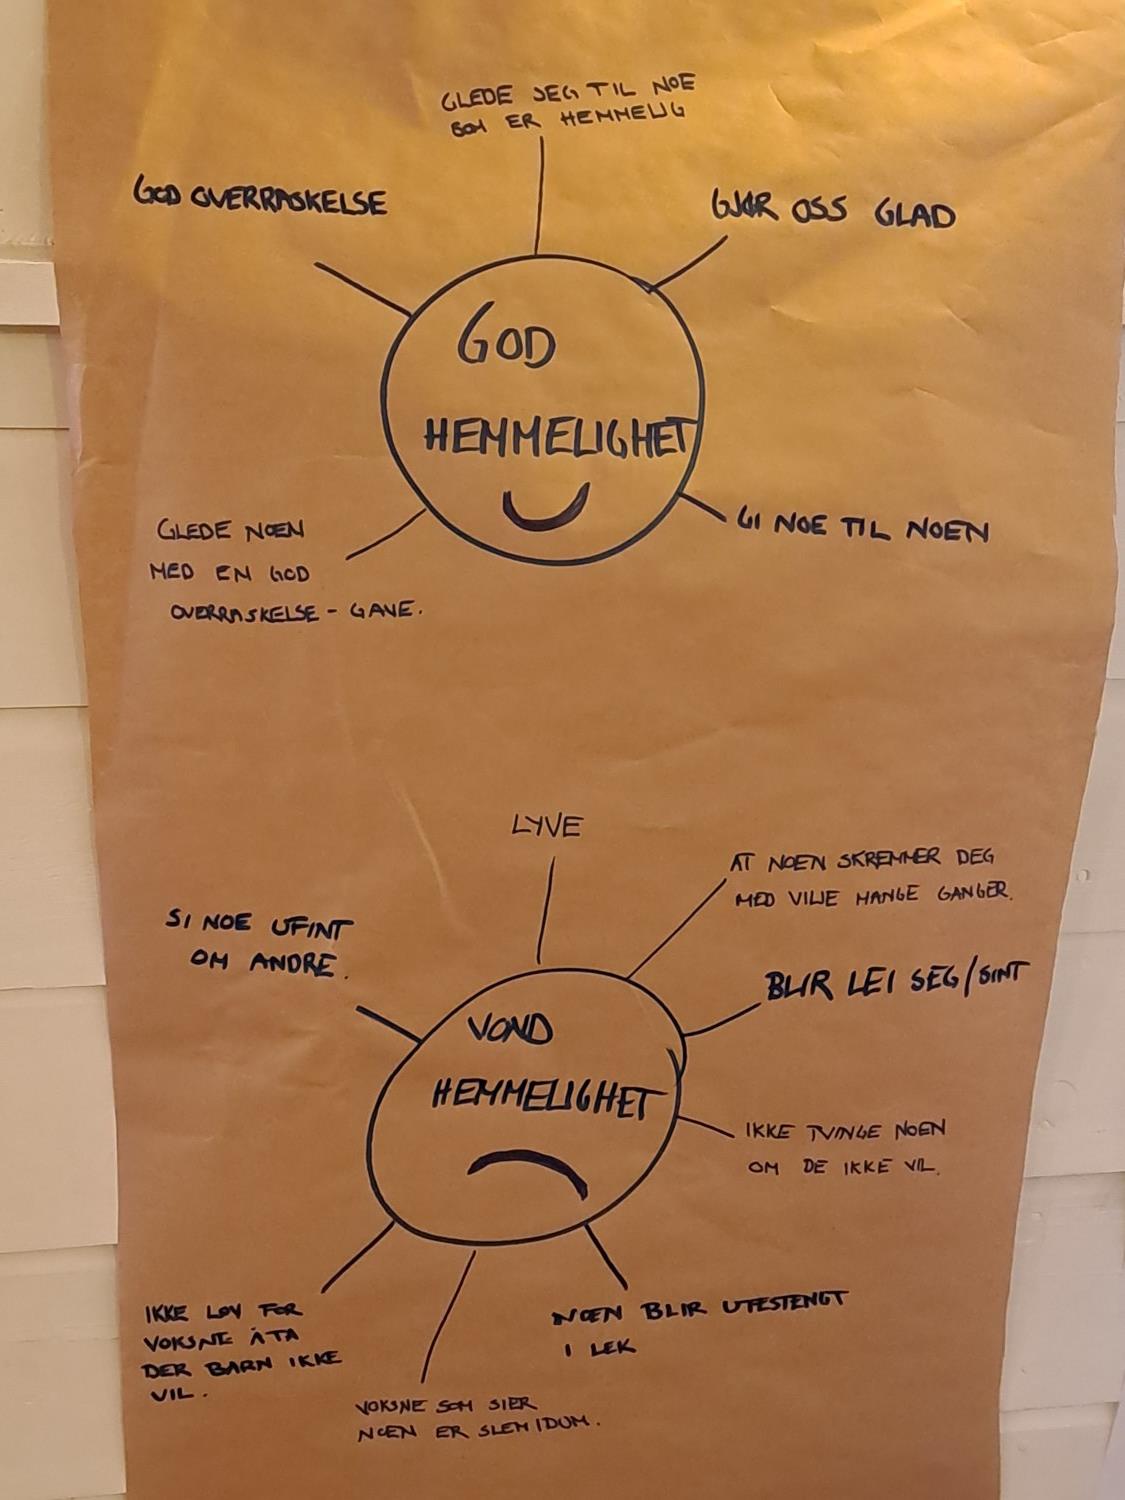 GLEDE SEG TIL NOE
SOM ER HEMMELIG
GOD OVERRASKELSE
GJØR OSS GLAD
GOD
HEMMELIGHET
GI NOE TIL NOEN
GLEDE NOEN
MED EN GOD
OVERRASKELSE - GAVE.
LYVE
AT NOEN SKREMMER DEG
MED VILJE MANGE GANGER.
SI NOE UFINT
OM ANDRE.
BLIR LEI SEG/SINT
VOND
HEMMELIGHET
IKKE TVINGE NOEN
OM DE IKKE VIL.
IKKE LOV FOR
VOKSNE Å TA
DER BARN IKKE
VIL.
NOEN BLIR UTESTENGT
I LEK
VOKSNE SOM SIER
NOEN ER SLEM/DUM.